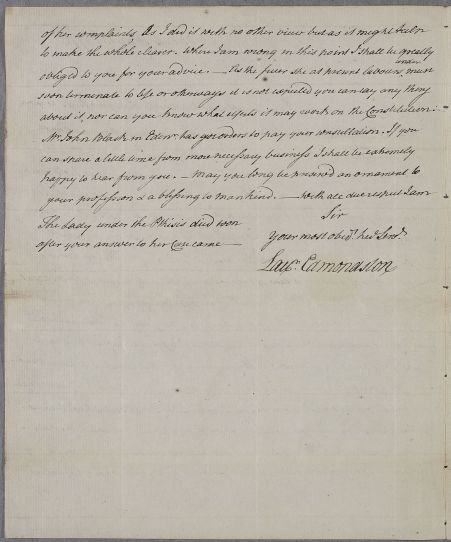 of her complaints. As I did it with no other view but as it might help
to make the whole clearer. Where I am wrong in this point I shall be greatly
obliged to you for your advice. — As the fever she at present labours under must
soon terminate to life or otherways it is not expected you can say any thing
about it, nor can you know what effects it may work on the Constitution.
Mr. John Black in Edenr. has got orders to pay your consultation. If you
can spare a little time from more necessary business I shall be extremely
happy to hear from you. — May you long be an ornament to
your profession & a blessing to mankind. — with all due respect I am
Sir
The Lady under the Phtisis died soon
after your answer to her Case came —
Your most obedt. Servt.
Laur. Edmondston